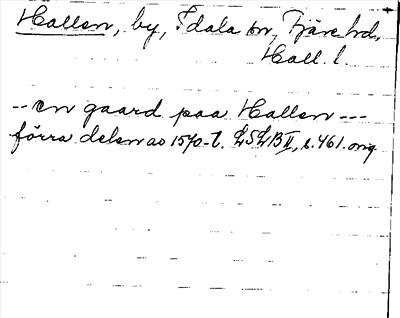 Hallen, by, Idala sn, Fjäre hd,
Hall. l.
-- en gaard paa Hallen ---
förra delen av 1570-t. LSLB II, s. 461. orig